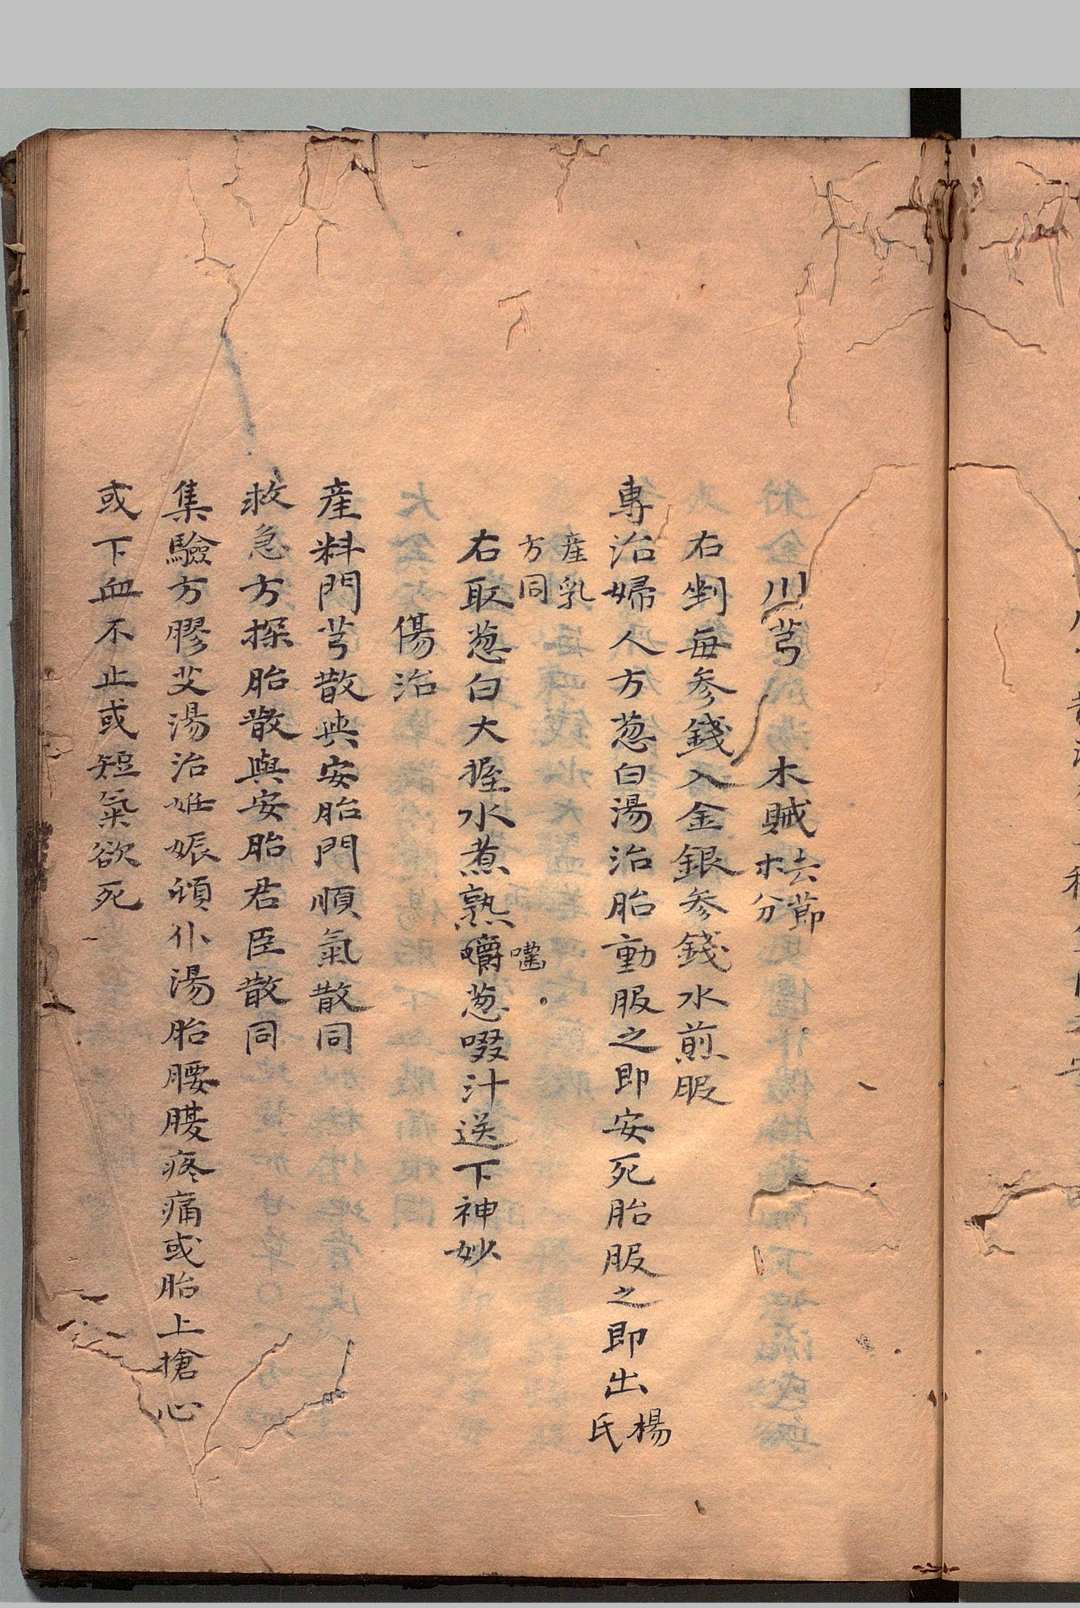 川芎　木賊去節朩分
右剉每参錢入金銀参錢水煎服
專治婦人方葱白湯治胎動服之即安死胎服之即出楊氏
産乳方同
右取葱白大握水煮熟嚼葱啜汁送下神妙
傷治
産料門芎散與安胎門順氣散同
救急方探胎散與安胎君臣散同
集驗方膠艾湯治妊娠頓仆湯胎腰腹疼痛或胎上搶心
或下血不止或短氣欲死